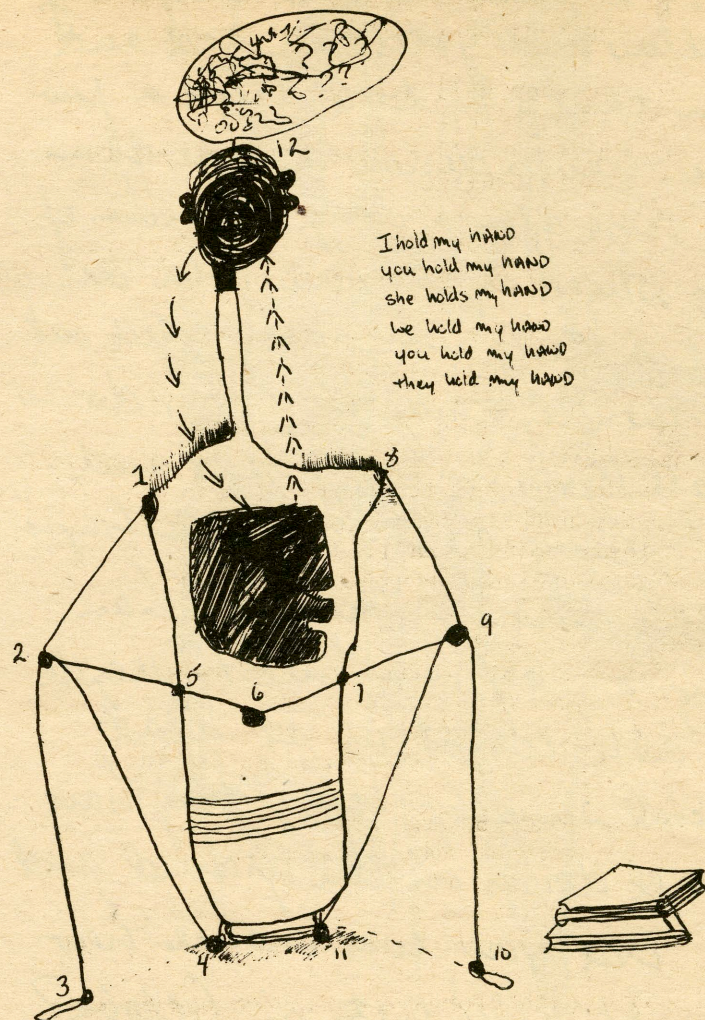 12
I hold my HAND
you hold my HAND
she holds my HAND
we hold my HAND
you hold my HAND
they hold my HAND
1
8
2
9
5
6
7
3
4
11
10